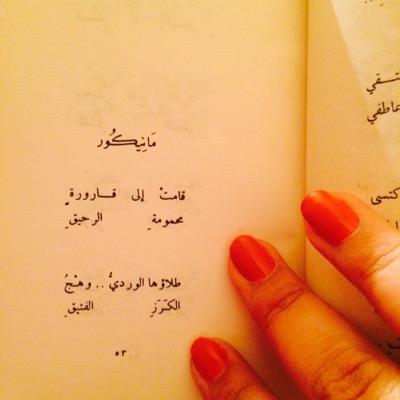 مَانِيكُور
قامتْ إلى قارورةٍ
محمومةِ الرحيقِ
طلاؤها الورديُّ .. وهْجُ
الكَرَزِ الفتيقِ
٥٣
عاطفي